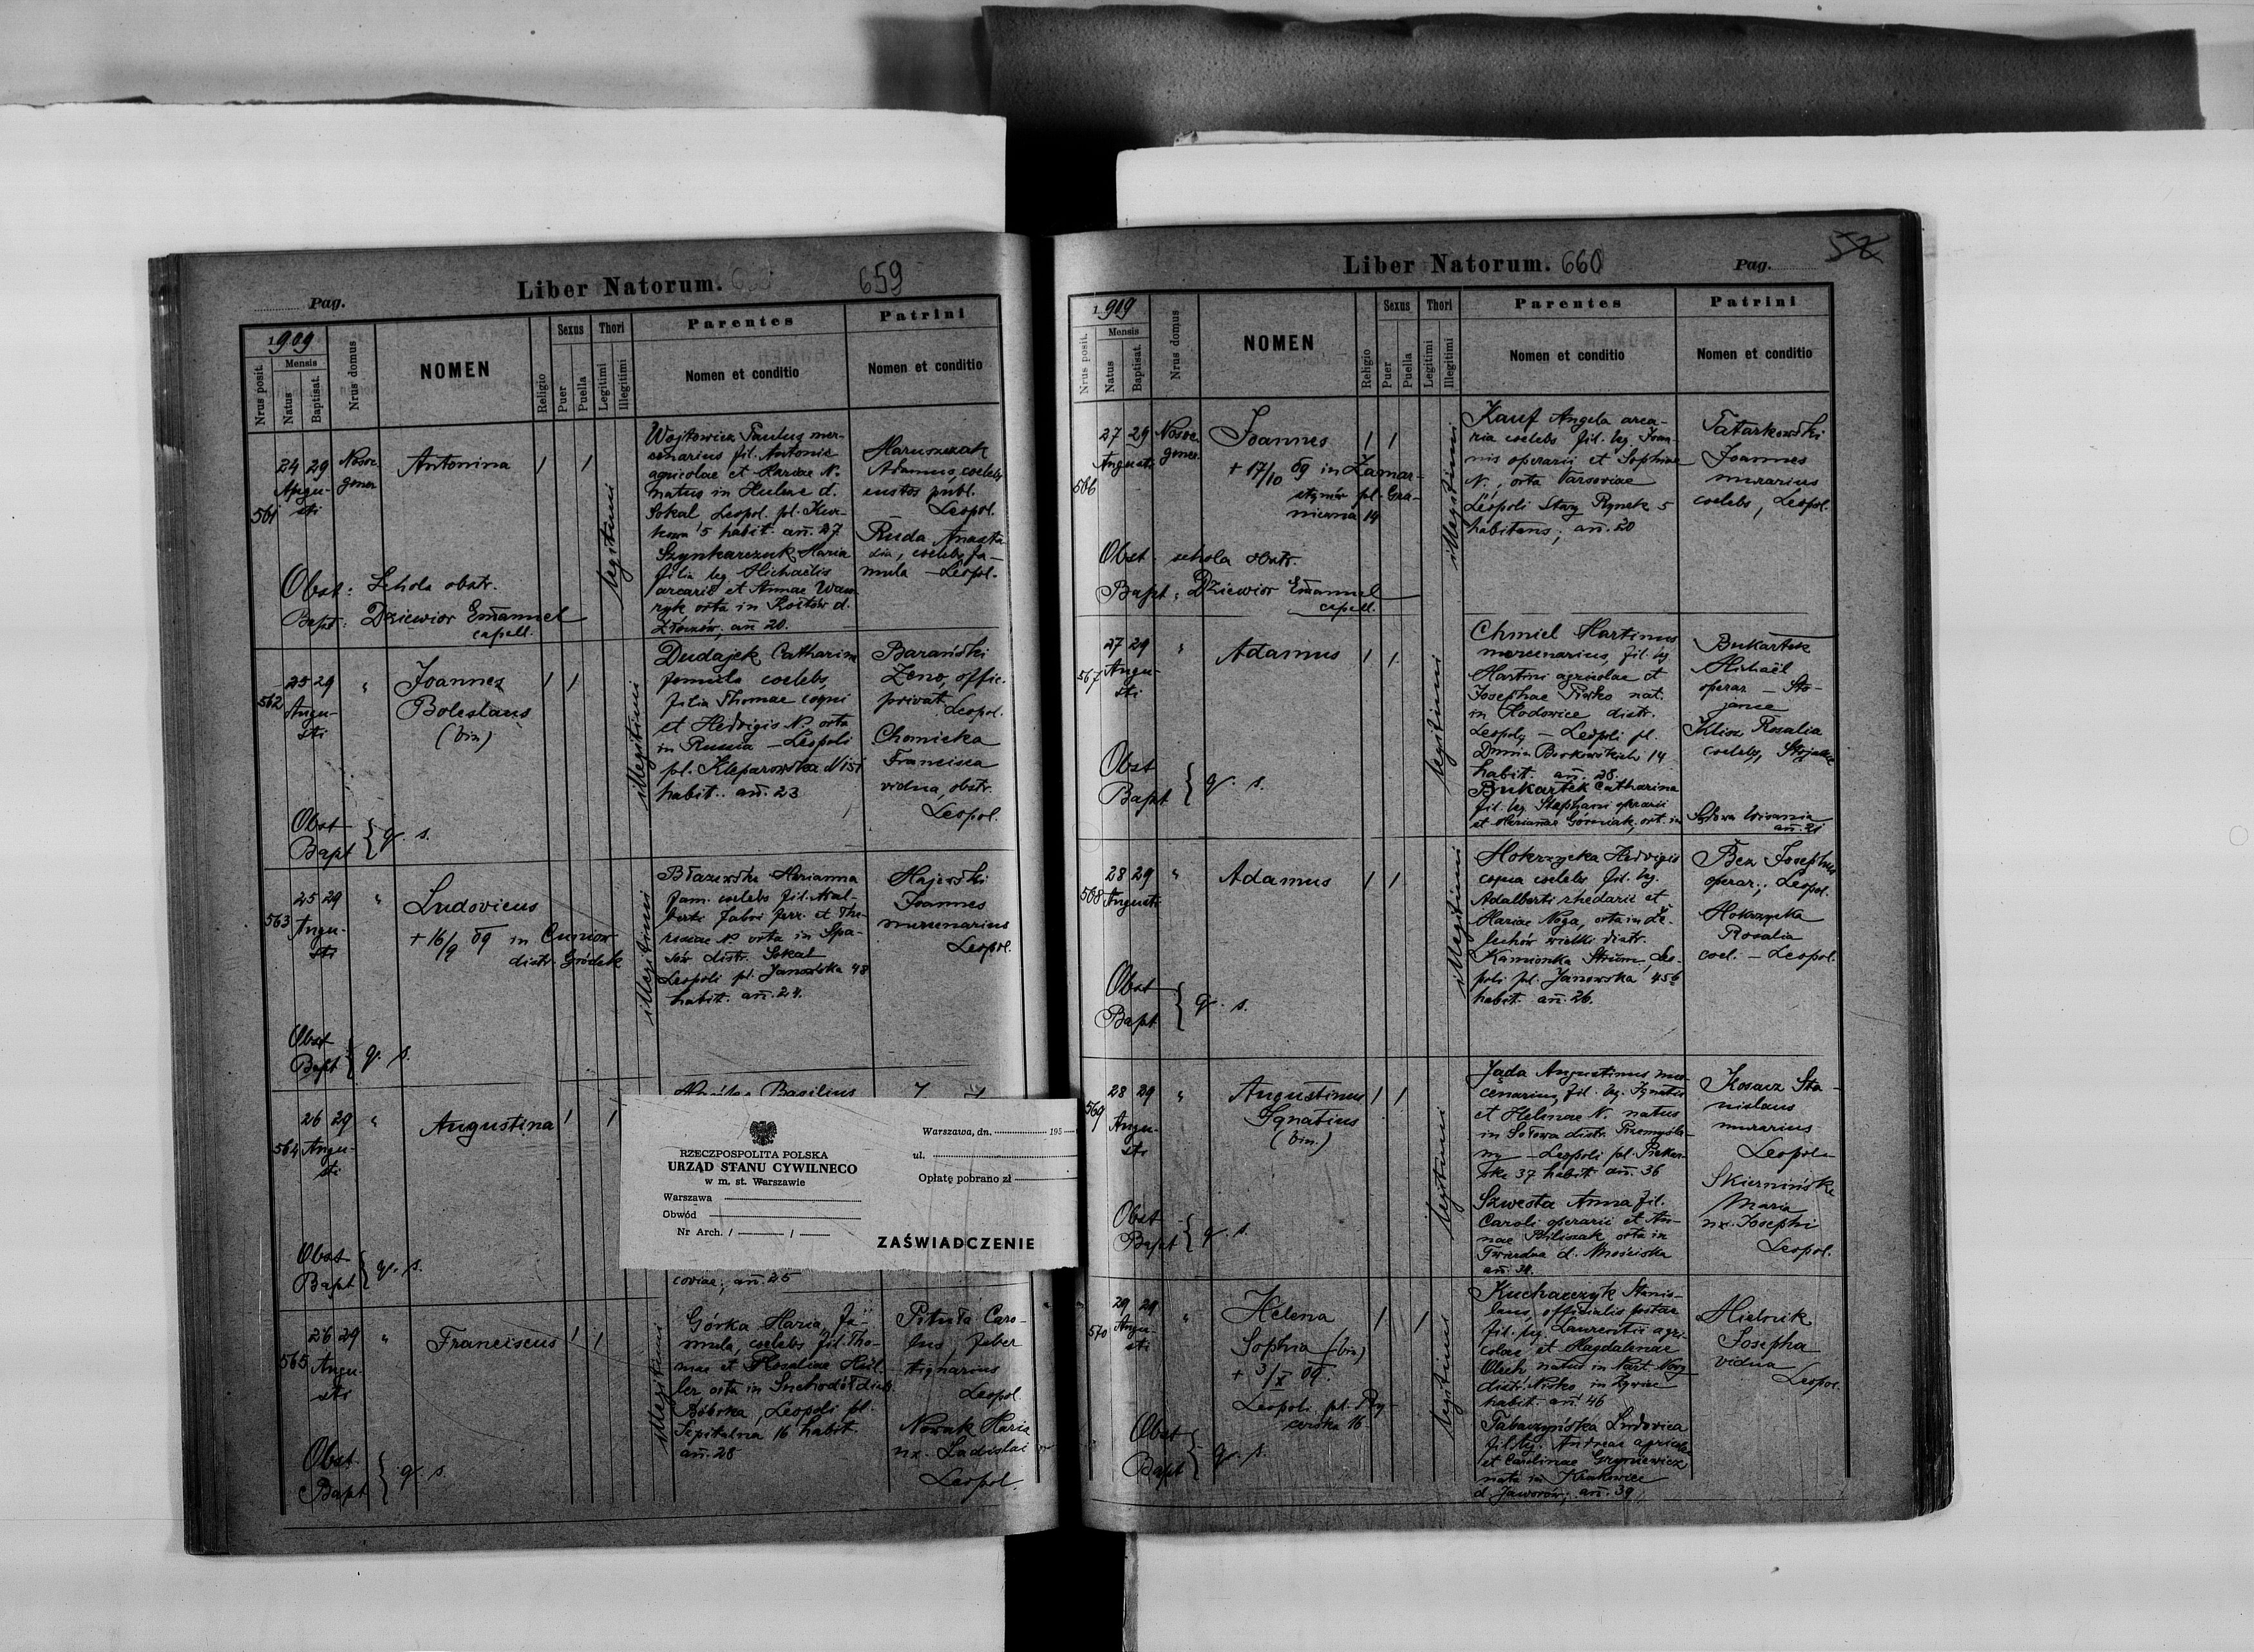 Pag.
Liber Natorum.
659
1909
Nrus posit.
Mensis
Natus
Baptisat.
Nrus domus
NOMEN
Religio
Sexus
Puer
Puella
Thori
Legitimi
Illegitimi
Parentes
Nomen et conditio
Patrini
Nomen et conditio
561
24 29
Augu-
sti
Nosoc.
gener
Antonina
1 1
legitimi
Wojtowicz Paulus mer-
cenarius fil. Antonii
agricolae et Mariae N.
natus in Hulcze d.
Sokal Leopol. pl. Kur-
kowa 5 habit. añ. 27
Szynkarczuk Maria
filia leg. Michaëlis
arcarii et Annae Waw-
ryk orta in d.
Złoczów, añ 20.
Maruszczak
Adamus, coelebs
custos publ.
Leopol.
Ruda Anasta-
sia, coelebs fa-
mula - Leopol.
Obst: Schola obstr.
Bapt: Dziewior Emanuel
capell.
562
25 29
Augu-
sti
"
Joannes
Boleslaus
(bin)
1 1
illegitimi
Dudajek Catharina
famula coelebs,
filia Thomae
et Hedvigis N. orta
in Russia - Leopoli
pl. Kleparowska N 151
habit. añ. 23
Barański
Zeno, offic.
privat. Leopol.
Chomicka
Francisca
vidua, obstr.
Leopol.
Obst
Bapt } q. s.
563
25 29
Augu-
sti
"
Ludovicus
+ 16/9 09 in Cuniow
distr. Gródek
illegitimi
Błazewska Marianna
fam. coelebs fil. Adal-
berti fabri ferr. et The-
resiae N. orta in Spa-
sów distr. Sokal
Leopoli pl. Janowska 48
habit. añ. 24.
Majewski
Joannes
mercenarius
Leopol.
Obst
Bapt } q. s.
564
26 29
Augu-
sti
"
Augustina
1 1
Basilius
RZECZPOSPOLITA POLSKA
URZĄD STANU CYWILNEGO
w m. st. Warszawie
Warszawa
Obwód
Nr Arch. / /
Warszawa, dn. 195
ul.
Opłatę pobrano zł
ZAŚWIADCZENIE
coviae, añ. 25
Obst
Bapt } q. s.
565
26 29
Augu-
sti
"
Franciscus
1 1
illegitimi
Górka Maria, fa-
mula, coelebs fil. Tho-
mae et Rosaliae Hül-
ler, orta in Suchodół distr.
Bóbrka, Leopoli pl.
Szpitalna 16 habit.
añ. 28
Pituła Caro-
lus, faber
tignarius
Leopol.
Nowak Maria
ux. Ladislai
Leopol.
Obst
Bapt } q. s.
Liber Natorum.
660
Pag.
52
1909
Nrus posit.
Mensis
Natus
Baptisat.
Nrus domus
NOMEN
Religio
Sexus
Puer
Puella
Thori
Legitimi
Illegitimi
Parentes
Nomen et conditio
Patrini
Nomen et conditio
566
27 29
Augusti
Nosoc.
gener.
Joannes
1 1
+ 17/10 09 in Zamar-
stynów pl. Gra-
niczna 14
illegitimi
Kauf Angela arca-
ria coelebs fil. leg. Joan-
nis operarii et Sophiae
N., orta Varsoviae
Leopoli Stary Rynek 5
habitans; añ. 20
Tatarkowski
Joannes
murarius
coelebs, Leopol.
Obst. schola obstr.
Bapt: Dziewior Emanuel
capell.
567
27 29
Augu-
sti
"
Adamus
1 1
legitimi
Chmiel Martinus
mercenarius, fil. leg.
Martini agricolae et
Josephae nat.
in Rodowice distr.
Leopoly - Leopoli pl.
Dunin Borkowskich 14
habit. añ. 28.
Bukartek Catharina
fil. leg. Stephani operarii
et Mariannae Górniak, ort. in
Bukartek
Michaël
operar - Sto-
jance
Klisz Rosalia
coelebs, Stojance
Sądowa Wisznia
añ. 21
Obst
Bapt } q. s.
568
28 29
Augusti
"
Adamus
1 1
illegitimi
Mokrzycka Hedvigis
coqua coelebs fil. leg.
Adalberti rhedarii et
Mariae Noga, orta in Że-
luchów wielki distr.
Kamionka Strum., Leo-
poli pl. Janowska 45b
habit. añ. 26.
Bez Josephus
operar., Leopol.
Mokrzycka
Rosalia
coel. - Leopol.
Obst
Bapt } q. s.
569
28 29
Augu-
sti
"
Augustinus
Ignatius
(bin.)
1 1
legitimi
Jada Augustinus mer-
cenarius, fil. leg. Ignatii
et Helenae N. natus
in Sołowa distr. Przemyśla-
ny - Leopoli pl. Piekar-
ska 37 habit. añ. 36
Szwesta Anna fil.
Caroli operarii et An-
nae Biliszak orta in
Twierdza d. Mościska
Kosacz Sta-
nislaus
murarius
Leopol-
Skiernińska
Maria
ux. Josephi
Leopol.
Obst
Bapt } q. s.
570
29 29
Augu-
sti
"
Helena
Sophia (bin)
+ 3/X 09.
Leopoli pl. Ry-
cerska 16
1 1
legitimi
Kucharczyk Stanis-
laus, officialis postae
fil. leg. Laurentii agri-
colae et Magdalenae
Olech natus in Nart Nowy
distr. Nisko in Żywiec
habit. añ. 46
Tabaczyńska Ludovica
fil. leg. Andreae agricolae
et Carolinae Gryniewicz
nata in Krakowiec
d. Jaworów; añ. 39
Mielnik
Josepha
vidua
Leopol.
Obst
Bapt } q. s.